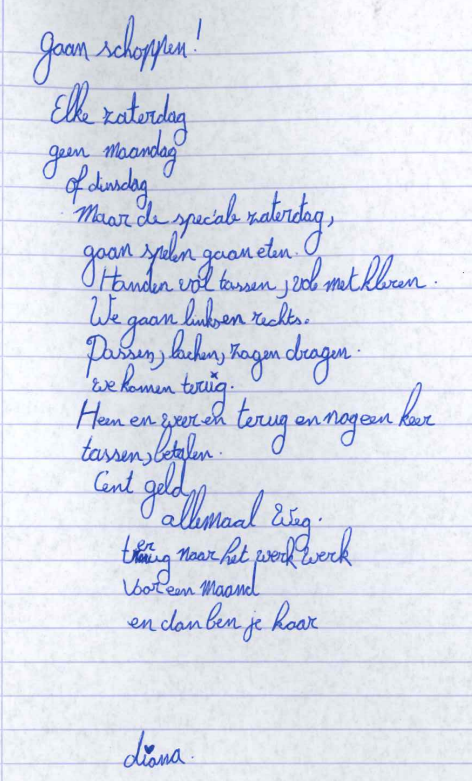 gaan schoppen!
Elke zaterdag
geen maandag
of dinsdag
Maar de speciale zaterdag,
gaan spelen gaan eten.
Handen vol tassen, vol met kleren.
We gaan links en rechts.
Passen, lachen, zagen dragen.
we komen terug.
Heen en weer en terug en nog een keer
tassen, betalen.
Cent geld
allemaal weg.
terug naar het werk werk
voor een maand
en dan ben je kaar
diana.